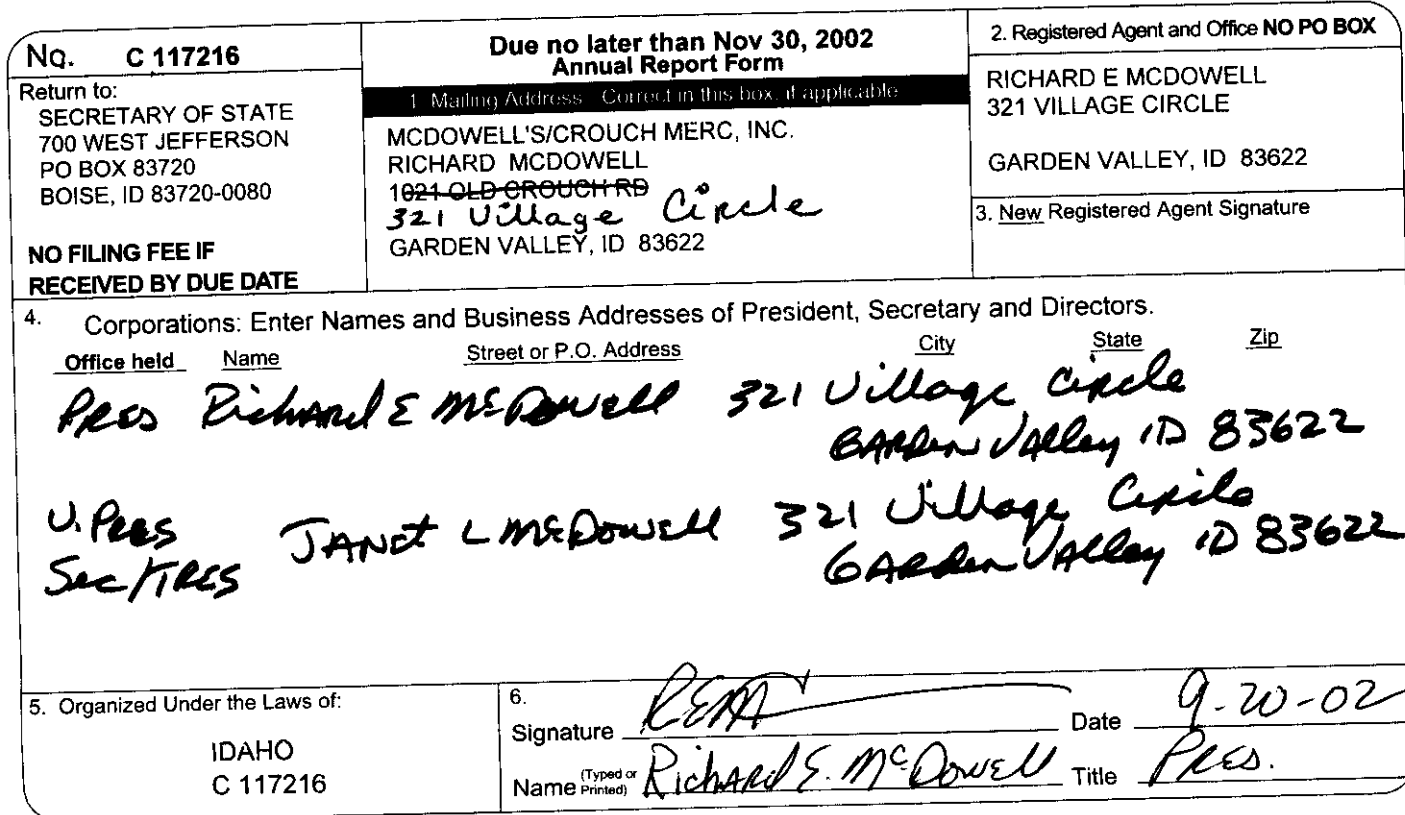 No. C 117216
Return to:
SECRETARY OF STATE
700 WEST JEFFERSON
PO BOX 83720
BOISE, ID 83720-0080
NO FILING FEE IF
RECEIVED BY DUE DATE
Due no later than Nov 30, 2002
Annual Report Form
1. Mailing Address: Correct in this box, if applicable
MCDOWELL'S/CROUCH MERC, INC.
RICHARD MCDOWELL
1021 OLD CROUCH RD
321 Village Circle
GARDEN VALLEY, ID 83622
2. Registered Agent and Office NO PO BOX
RICHARD E MCDOWELL
321 VILLAGE CIRCLE
GARDEN VALLEY, ID 83622
3. New Registered Agent Signature
4. Corporations: Enter Names and Business Addresses of President, Secretary and Directors.
Office held Name Street or P.O. Address City State Zip
Pres Richard E McDowell 321 Village Circle
Garden Valley ID 83622
V. Pres Janet L McDowell 321 Village Circle
Sec/Tres Garden Valley ID 83622
5. Organized Under the Laws of:
IDAHO
C 117216
6.
Signature REM Date 9-20-02
Name (Typed or Printed) Richard E. McDowell Title Pres.